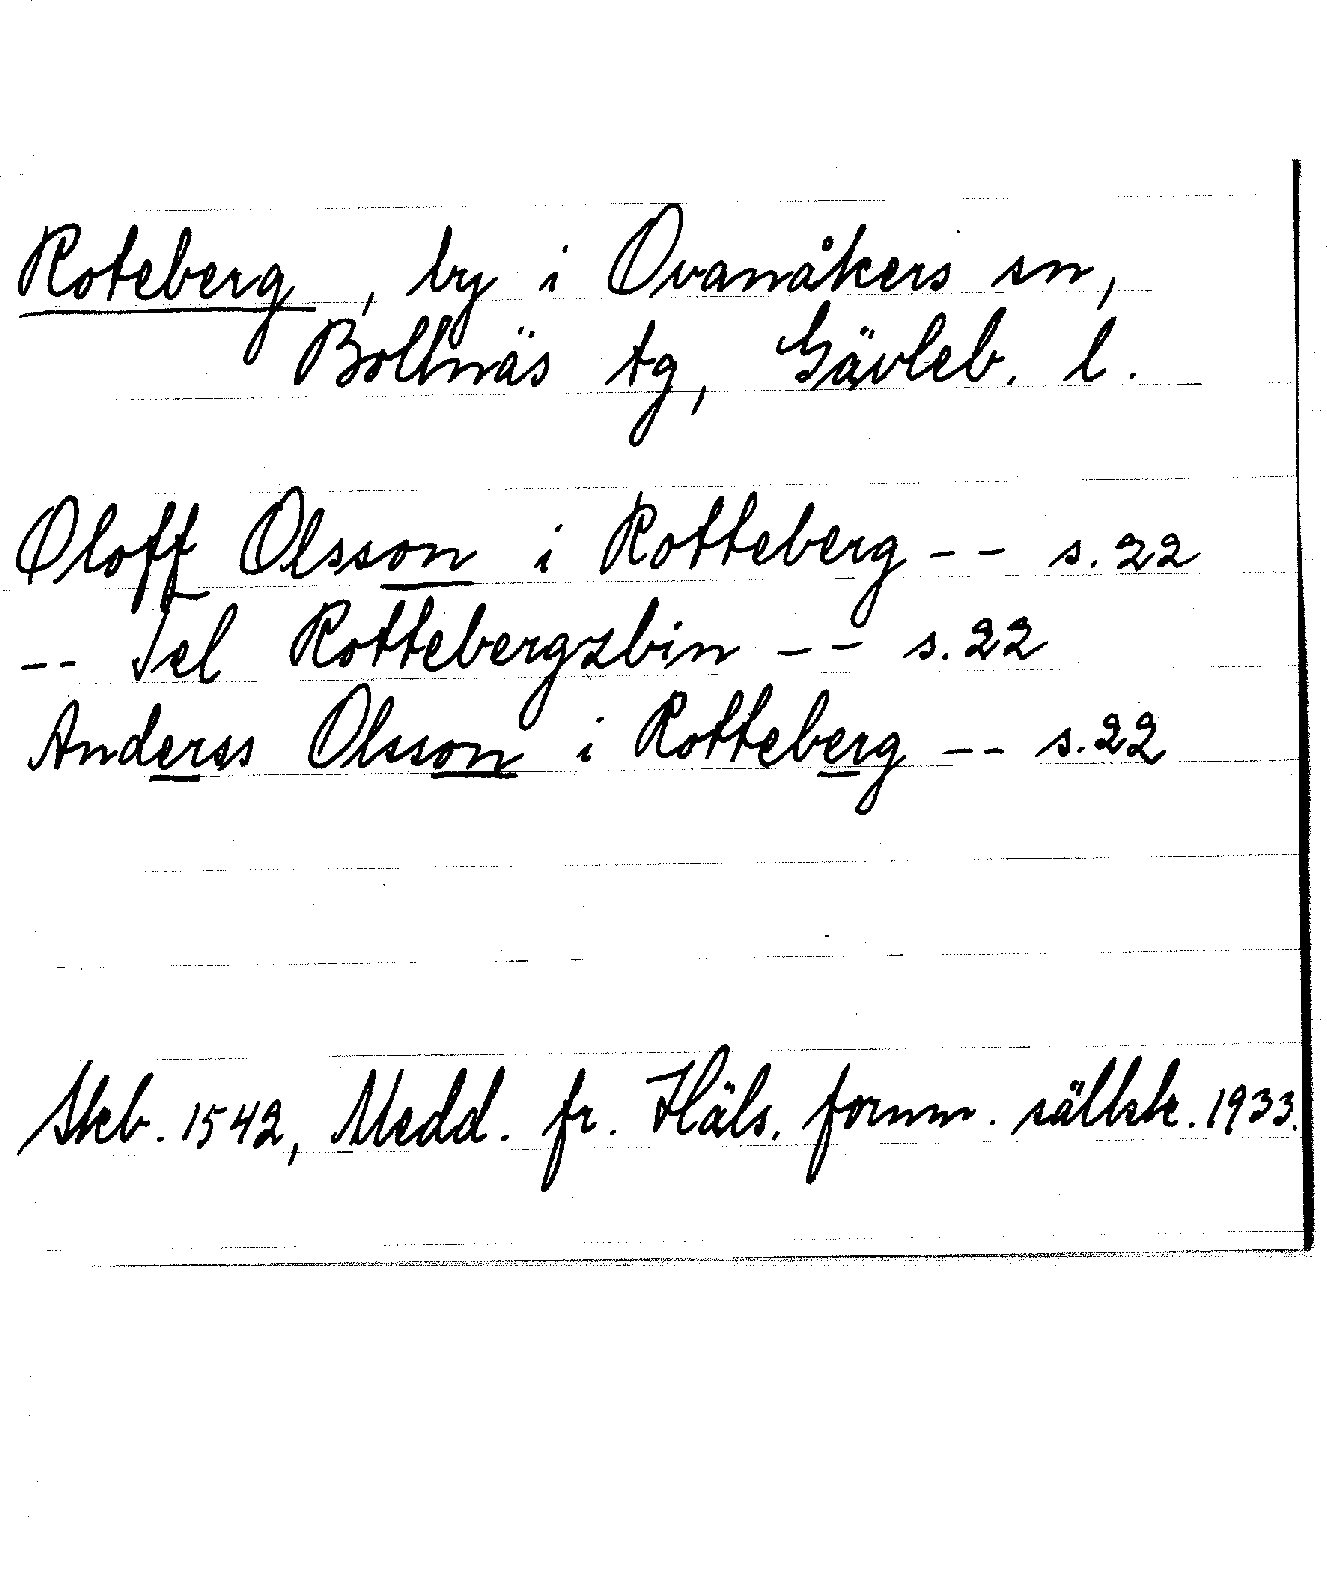 Roteberg, by i Ovanåkers sn,
Bollnäs tg, Gävleb. l.
Oloff Olsson i Rotteberg -- s. 22
-- Tel Rottebergzbin -- s. 22
Anderss Olsson i Rotteberg -- s. 22
Skb. 1542, Medd. fr. Häls. fornm. sällsk. 1933.